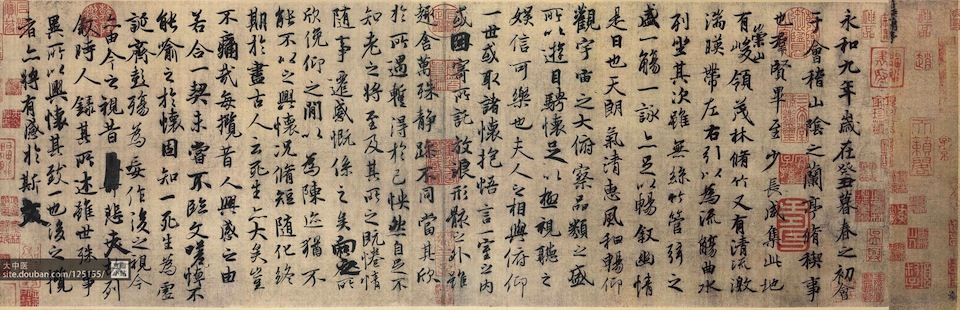 永和九年歲在癸丑暮春之初會
于會稽山陰之蘭亭脩稧事
也羣賢畢至少長咸集此地
有崇山峻領茂林脩竹又有清流激
湍暎帶左右引以為流觴曲水
列坐其次雖無絲竹管弦之
盛一觴一詠亦足以暢敘幽情
是日也天朗氣清惠風和暢仰
觀宇宙之大俯察品類之盛
所以遊目騁懷足以極視聽之
娛信可樂也夫人之相與俯仰
一世或取諸懷抱悟言一室之內
或因寄所託放浪形骸之外雖
趣舍萬殊靜躁不同當其欣
於所遇蹔得於己怏然自足不
知老之將至及其所之既惓情
隨事遷感慨係之矣向之所
欣俛仰之間以為陳迹猶不
能不以之興懷況脩短隨化終
期於盡古人云死生亦大矣豈
不痛哉每攬昔人興感之由
若合一契未嘗不臨文嗟悼不
能喻之於懷固知一死生為虛
誕齊彭殤為妄作後之視今
亦由今之視昔悲夫故列
敘時人錄其所述雖世殊事
異所以興懷其致一也後之攬
者亦將有感於斯文
大中医
site.douban.com/125155/